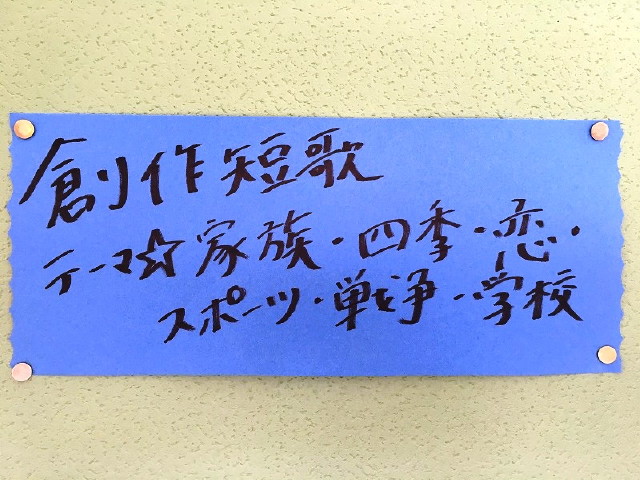 創作短歌
テーマ☆家族・四季・恋・
スポーツ・戦争・学校